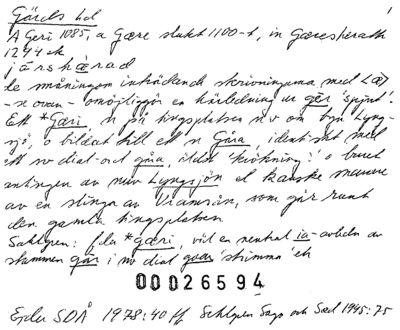 Gärds hd 1
A Geri 1085, a Gære slutet 1100-t, in Gæresherath
1274 ek
järshärad
de mångom inträdande skrivningarna med (æ)
- ovan - omöjliggör en härledning ur gēr 'spjut'.
Ett *Gæri n på tingsplatsen nv om byn Lyng-
sjö, o bildat till ett n Gåra, identiskt med
ett nv dial-ord gåra, 'krökning' o buret
antingen av nuv Lyngsjön el kanske snarare
av en slinga av Vramsån, som går runt
den gamla tingsplatsen
Sahlgren: fda *gæri, väl en neutral ia-avledn av
stammen gār i nv dial 'strimma' etc
00026594
Efter SOÅ 1978:40 ff Sahlgren Saga och Sed 1945:75